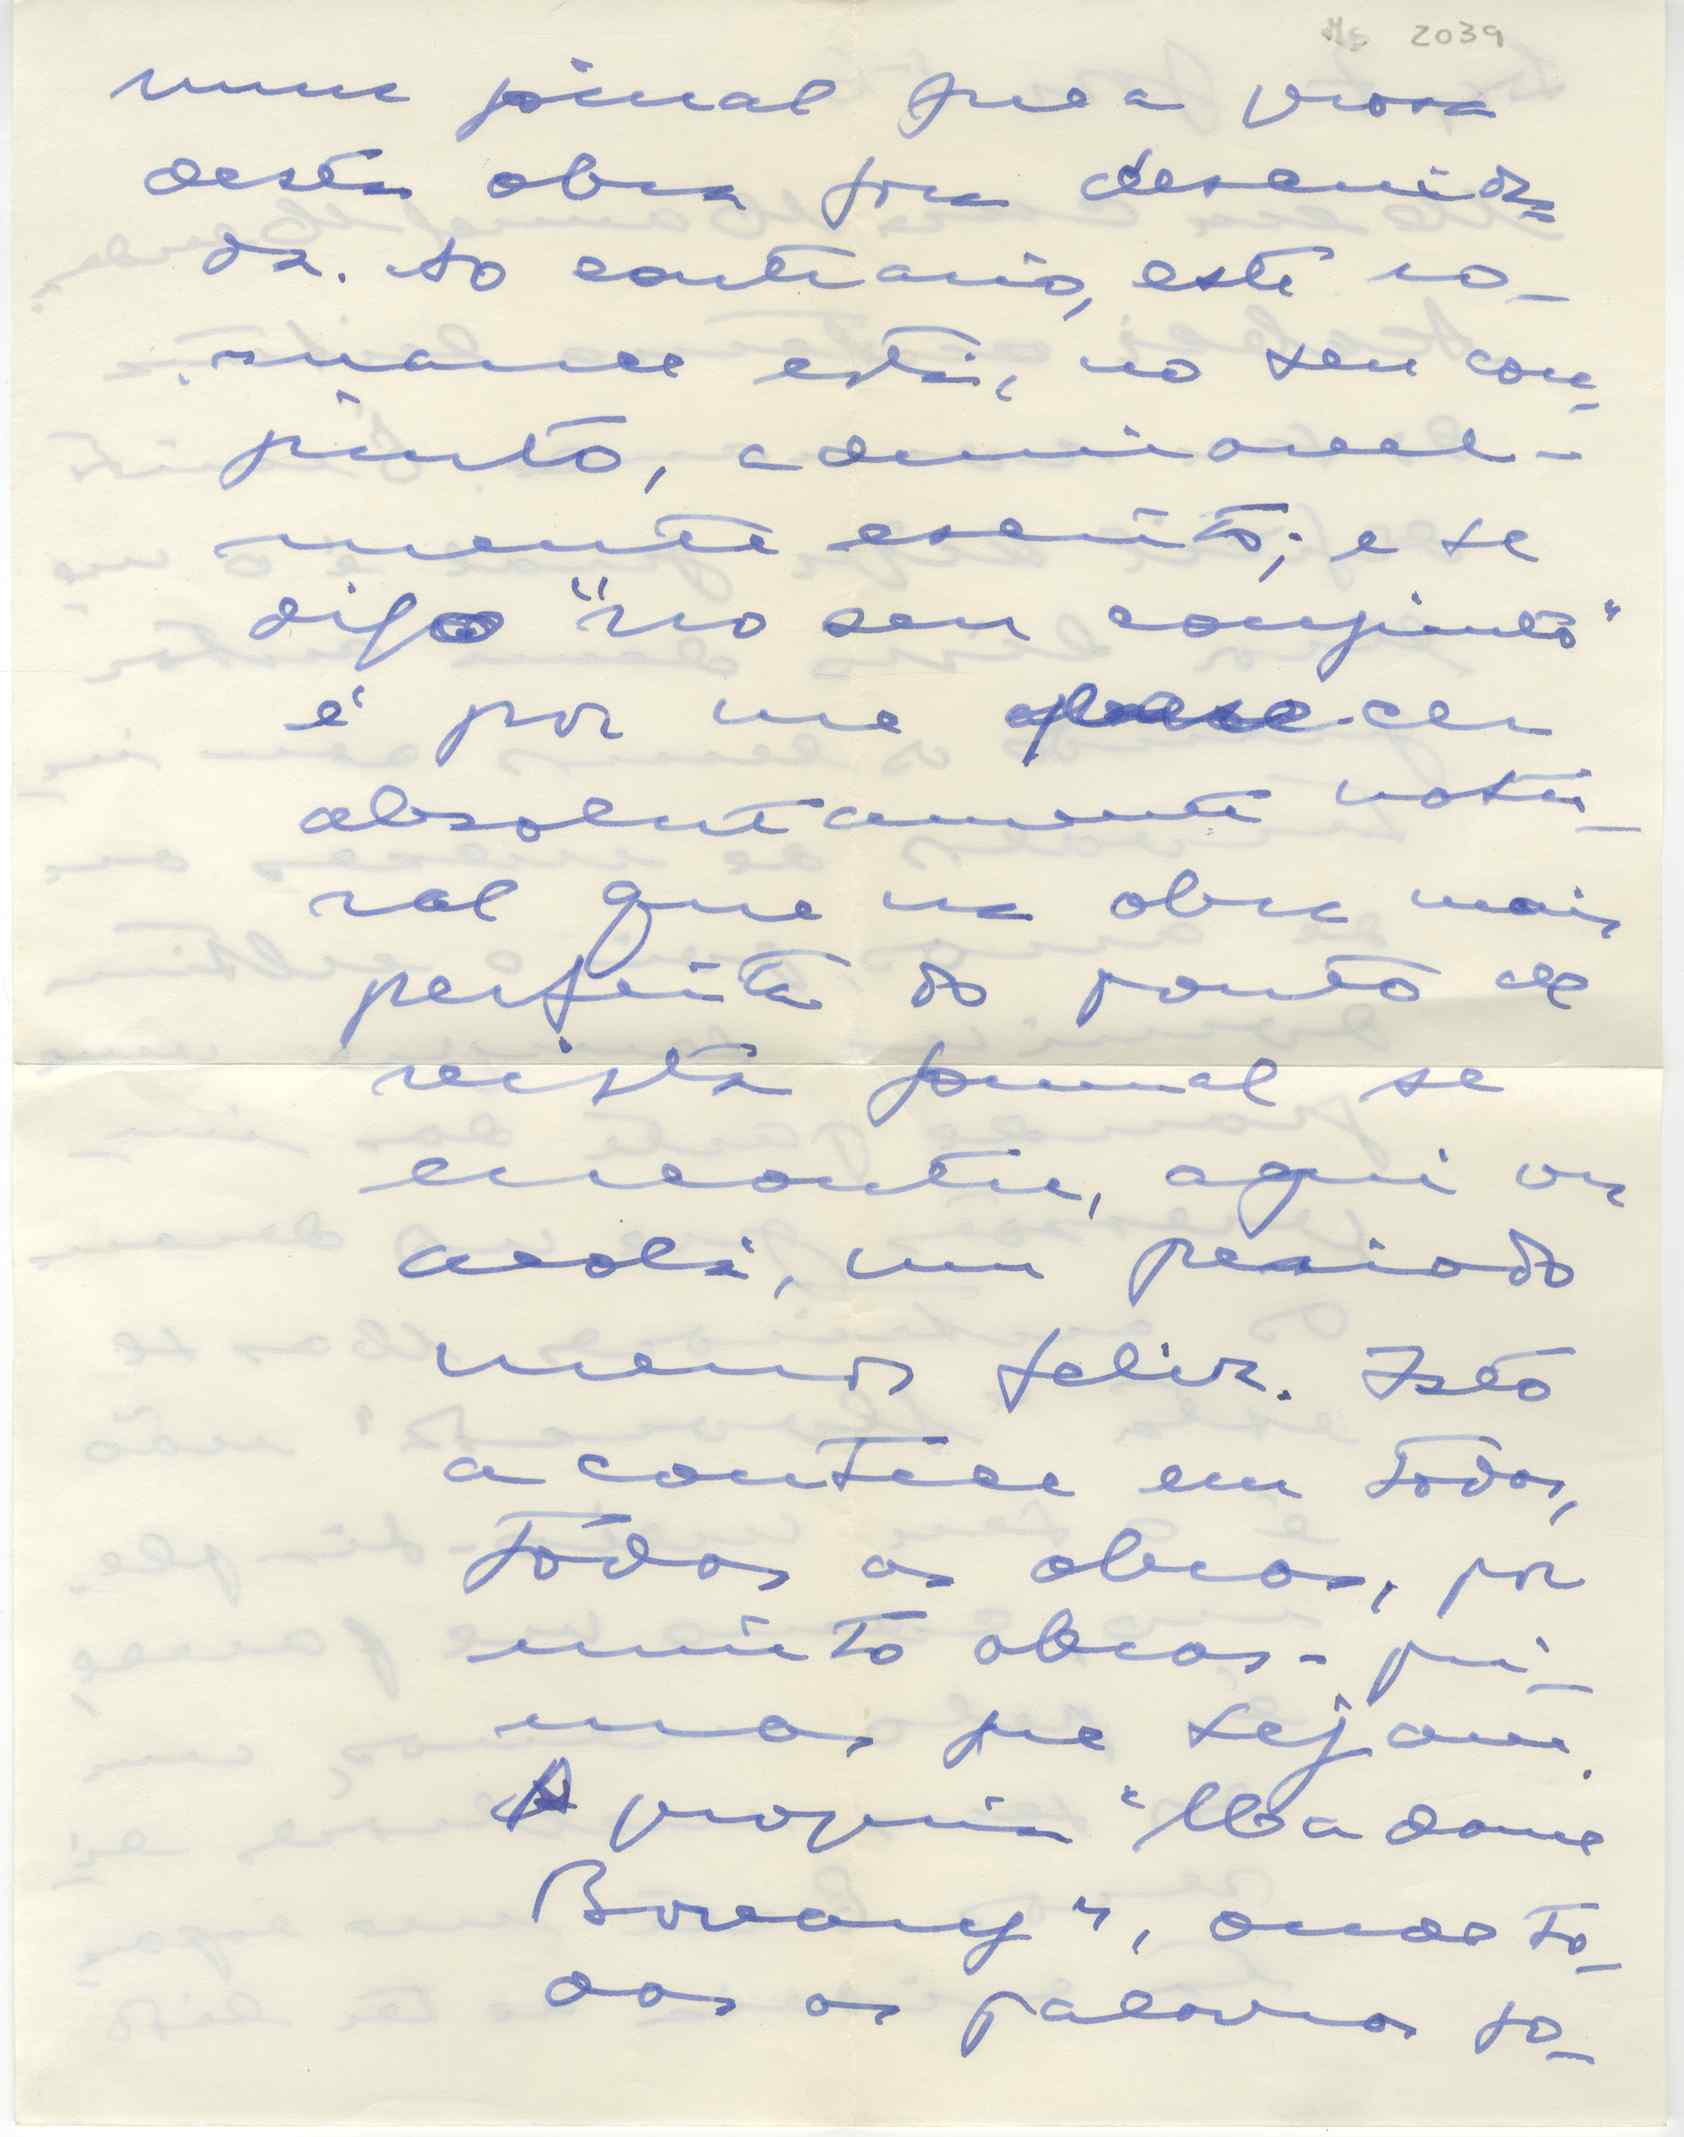 Ms 2039
num jornal que a prosa
desta obra fora descuida=
da. Ao contrario, este ro-
mance está, no seu con-
junto, admiravel-
mente escrito; e se
digo "no seu conjunto"
é por me parecer
absolutamente natu-
ral que na obra mais
perfeita do ponto de
vista formal se
encontre, aqui ou
acolá, um periodo
menos feliz. Isto
acontece em todas,
tôdas as obras, por
muito obras-pri-
mas que sejam.
A propria "Madame
Bovary", onde to-
das as palavras fo-